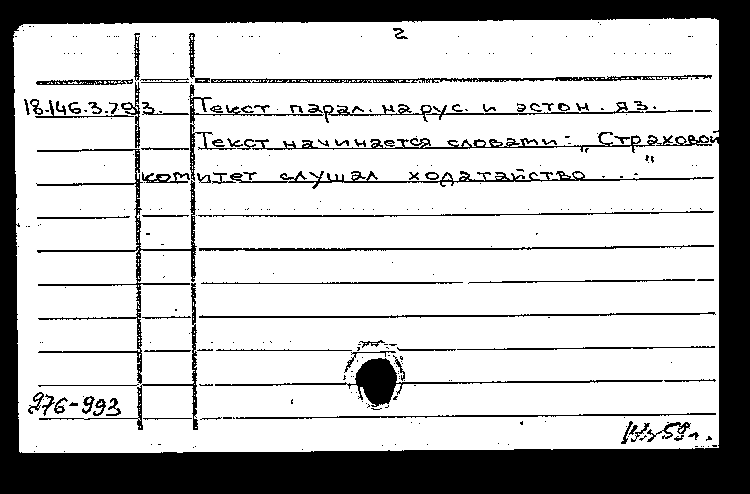 2
18.146.3.793. Текст парал. на рус. и эстон. яз.
Текст начинается словами: „Страховой
комитет слушал ходатайство ..."
976-993
59 г.